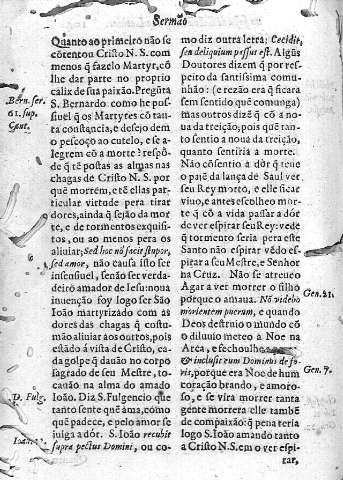 Sermão
Quanto ao primeiro não se
cõtentou Cristo N. S. com
menos q̃ fazelo Martyr, cõ
lhe dar parte no proprio
calix de sua paixão. Pregũta
S. Bernardo como he pos-
siuel q̃ os Martyres cõ tan-
ta constancia, e desejo dem
o pescoço ao cutelo, e se a-
legrem cõ a morte: respõ-
de q̃ tẽ postas as almas nas
chagas de Cristo N. S. por
quẽ morrẽm, e tẽ ellas par-
ticular virtude pera tirar
dores, ainda q̃ sejão da mor-
te, e de tormentos exquisi-
tos, ou ao menos pera os
aliuiar; Sed hoc nõ facit stupor,
sed amor, não causa isto ser
insensiuel, senão ser verda-
deiro amador de Iesu: noua
inuenção foy logo ser São
Ioão martyrizado com as
dores das chagas q̃ costu-
mão aliuiar aos outros, pois
estãdo á vista de Cristo, ca-
da golpe q̃ dauão no corpo
sagrado de seu Mestre, to-
cauão na alma do amado
Ioão. Diz S. Fulgencio que
tanto sente quẽ ama, como
que padece, e pelo amor se
julga a dór. S. Ioão recubit
supra pectus Domini, ou co-
Bern. ser.
61. sup.
Cant.
D. Fulg.
mo diz outra letra; Cecidit,
seu deliquium passus est. Algũs
Doutores dizem q̃ por res-
peito da santissima comu-
nhão: (e rezão era q̃ ficara
sem sentido quẽ comunga)
mas outros dizẽ q̃ cõ a no-
ua da treição, pois quẽ tan-
to sentio a noua da treição,
quanto sentiria a morte.
Não cõsentio a dór q̃ tene
o pajẽ da lança de Saul ver
seu Rey morto, e elle ficar
viuo, e antes escolheo mor-
te q̃ cõ a vida passar a dór
de ver espirar seu Rey: vede
q̃ tormento seria pera este
Santo não espirar vẽdo es-
pirar a seu Mestre, e Senhor
na Cruz. Não se atreueo
Agar a ver morrer o filho
porque o amaua. Nõ videbo
morientem puerum, e quando
Deos destruio o mundo cõ
o diluuio meteo a Noe na
Arca, e fechoulhe
& inclusit eum Dominus de fo-
ris, porque era Noe de hum
coração brando, e amoro-
so, e se vira morrer tanta
gente morrera elle tambẽ
de compaixão: q̃ pena teria
logo S. Ioão amando tanto
a Cristo N. S. em o ver espi-
rar,
Gen. 21.
Gen. 7.